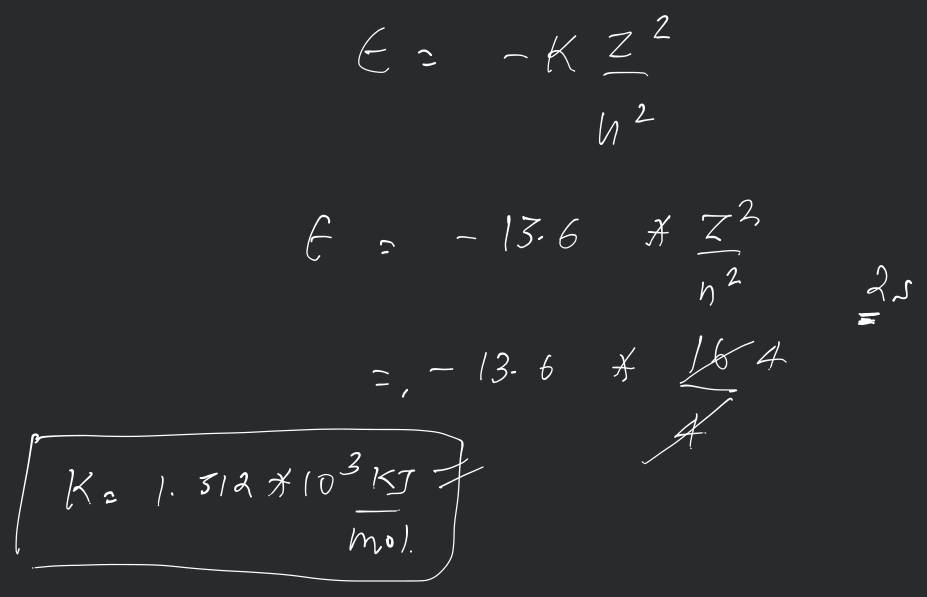 E = -K Z²/n²
E = -13.6 * Z²/n²
2s
= -13.6 * 16/4 4
K = 1.312 * 10³ KJ/mol.